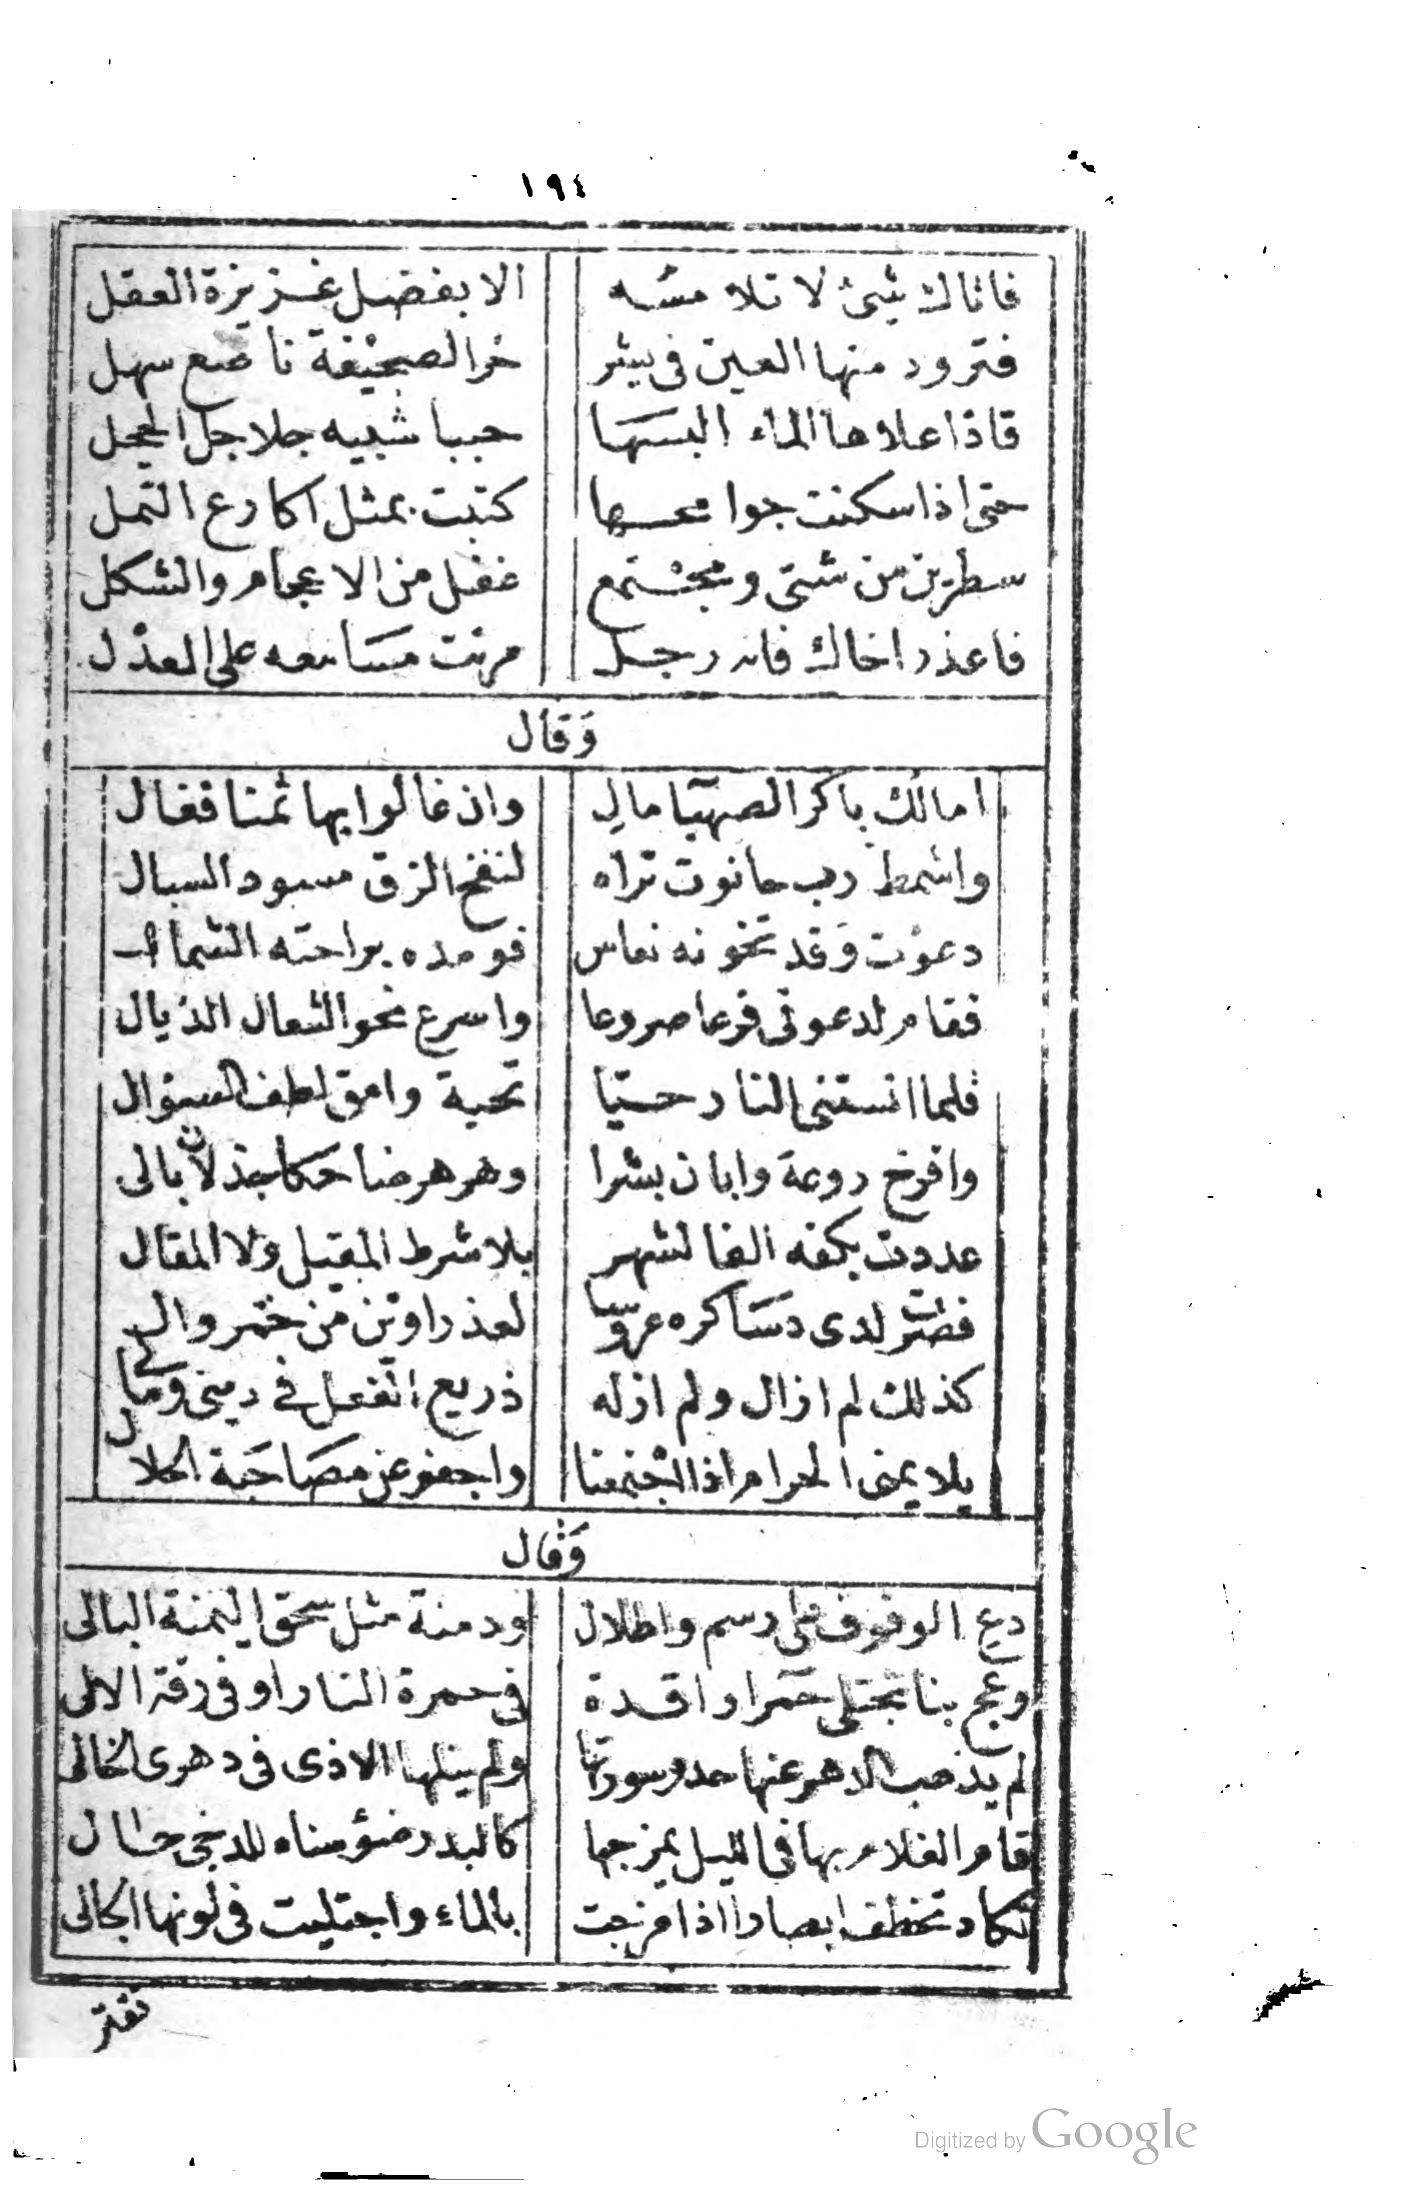 ١٩٤
فاتاك شئ لا تلامسه الا بفضل غريزة العقل
فترود منها العين فى بشر حر الصحيفة ناصع سهل
فاذا علاها الماء البسها حببا شبيه جلاجل الحجل
حتى اذا سكنت جوامحها كتبت بمثل اكارع النمل
سطرين من شتى ومجتمع غفل من الاعجام والشكل
فاعذر اخاك فانه رجل مرنت مسامعه على العذل
وَقال
امالك باكر الصهبآ مالِ وان غالوا بها ثمنا فغال
واشمط رب حانوت تراه لنفخ الزق مسود السبال
دعوت وَقد تخونه نعاس فوسده براحته الشمال
فقام لدعوتى فزعا مروعا واسرع نحو اشعال الذبال
فلما انستنى النار حيتا تحية وامق لطف السؤال
وافرخ روعة وابان بشرا وهرهر ضاحكا جذلان بالى
عددت بكفه الفا لشهر بلا شرط المقيل ولا المقال
فضلت لدى دسَاكره عروسا بعذراوين من خمر وال
كذلك لم ازال ولم ازله ذريع الفعل فى دينى ومالى
يلايمنى الحرام اذا اجتمعنا واجفو عن مصَاحَبة الحلال
وَقال
دع الوقوف على رسم واطلال ودمنة مثل سحق اليمنة البالى
وعج بنا نجتلى حمرا واقدة فى حمرة النار او فى رقة الال
لم يذهب الدهر عنها حد سورتها ولم ينلها الاذى فى دهرى الخالى
قام الغلام بها فى الليل يمزجها كالبدر ضؤ سناه للدجى جال
تكاد تخطف ابصارا اذا مزجت بالماء واجتليت فى لونها الجالى
تفتر
Digitized by Google